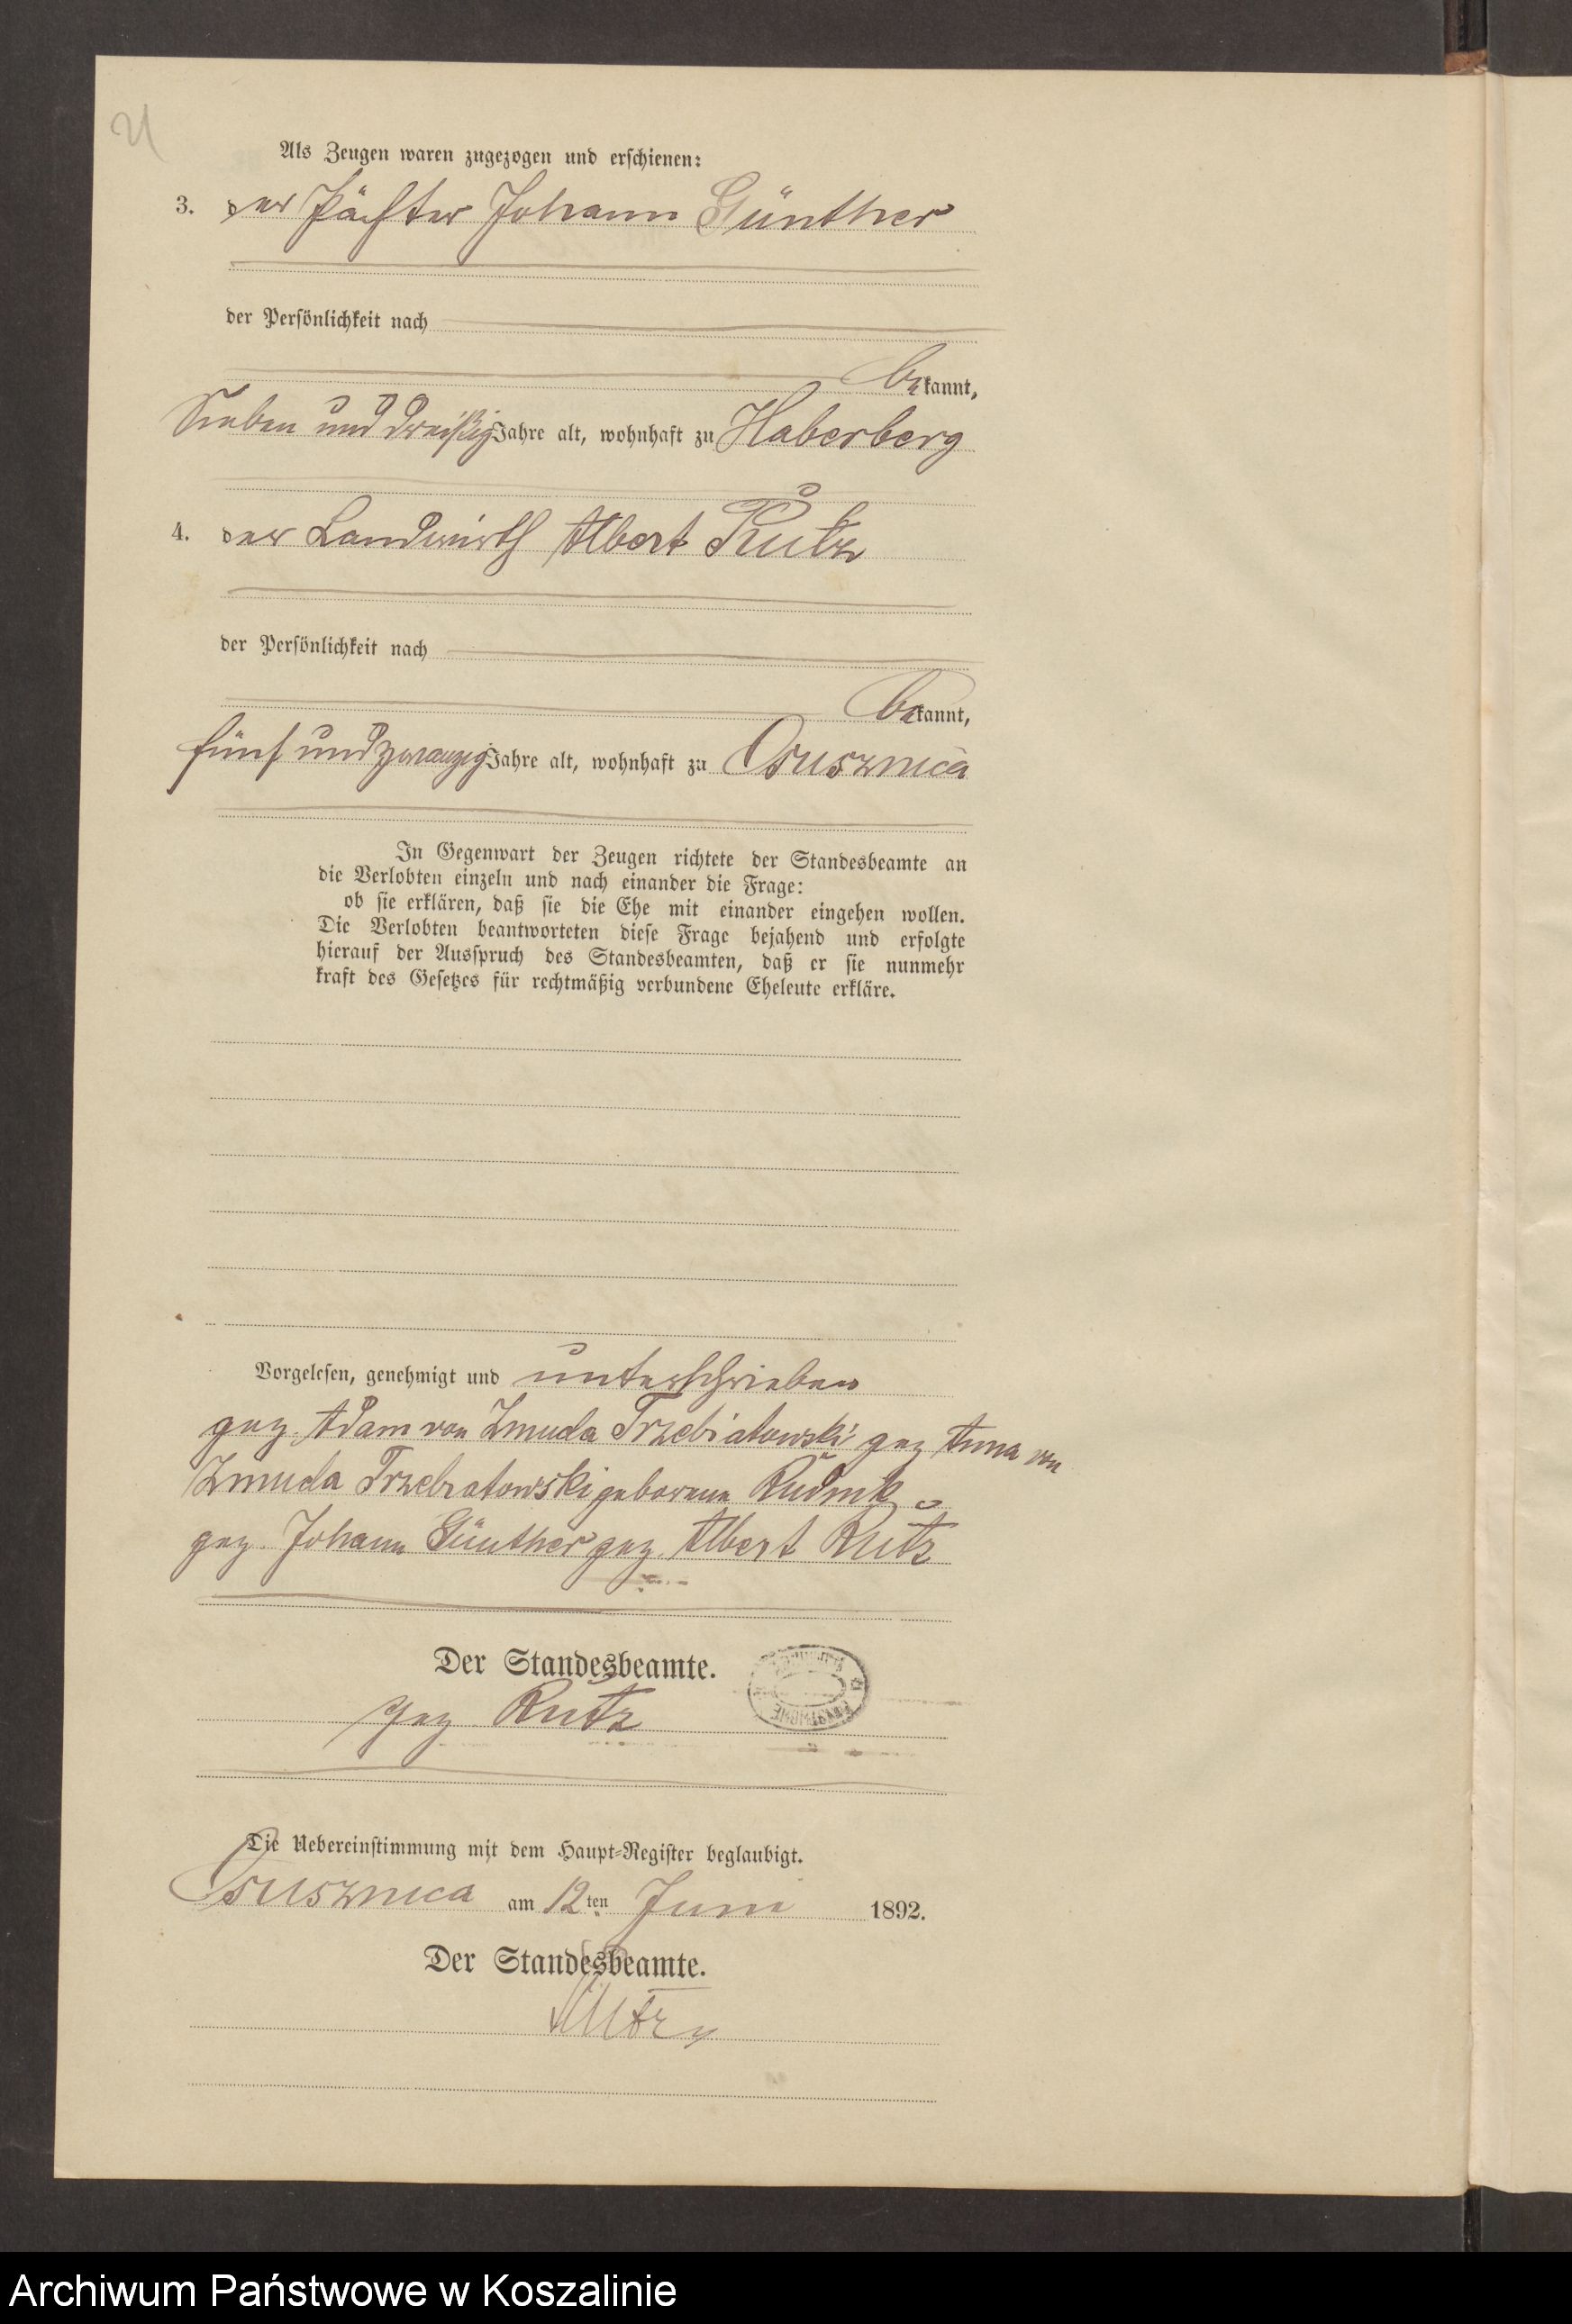 21
Als Zeugen waren zugezogen und erschienen:
3. der Pächter Johann Günther
der Persönlichkeit nach
bekannt,
Sieben und dreißig Jahre alt, wohnhaft zu Haberberg
4. der Landwirth Albert Rutz
der Persönlichkeit nach
bekannt,
fünf und zwanzig Jahre alt, wohnhaft zu Osusznica
In Gegenwart der Zeugen richtete der Standesbeamte an
die Verlobten einzeln und nach einander die Frage:
ob sie erklären, daß sie die Ehe mit einander eingehen wollen.
Die Verlobten beantworteten diese Frage bejahend und erfolgte
hierauf der Ausspruch des Standesbeamten, daß er sie nunmehr
kraft des Gesetzes für rechtmäßig verbundene Eheleute erkläre.
Vorgelesen, genehmigt und unterschrieben
gez. Adam von Zmuda Trzebiatowski gez Anna von
Zmuda Trzebiatowski geborene Rudnik
gez. Johann Günther gez. Albert Rutz
Der Standesbeamte.
gez Rutz
Die Uebereinstimmung mit dem Haupt-Register beglaubigt.
Osusznica am 12ten Juni 1892.
Der Standesbeamte.
Rutz
Archiwum Państwowe w Koszalinie